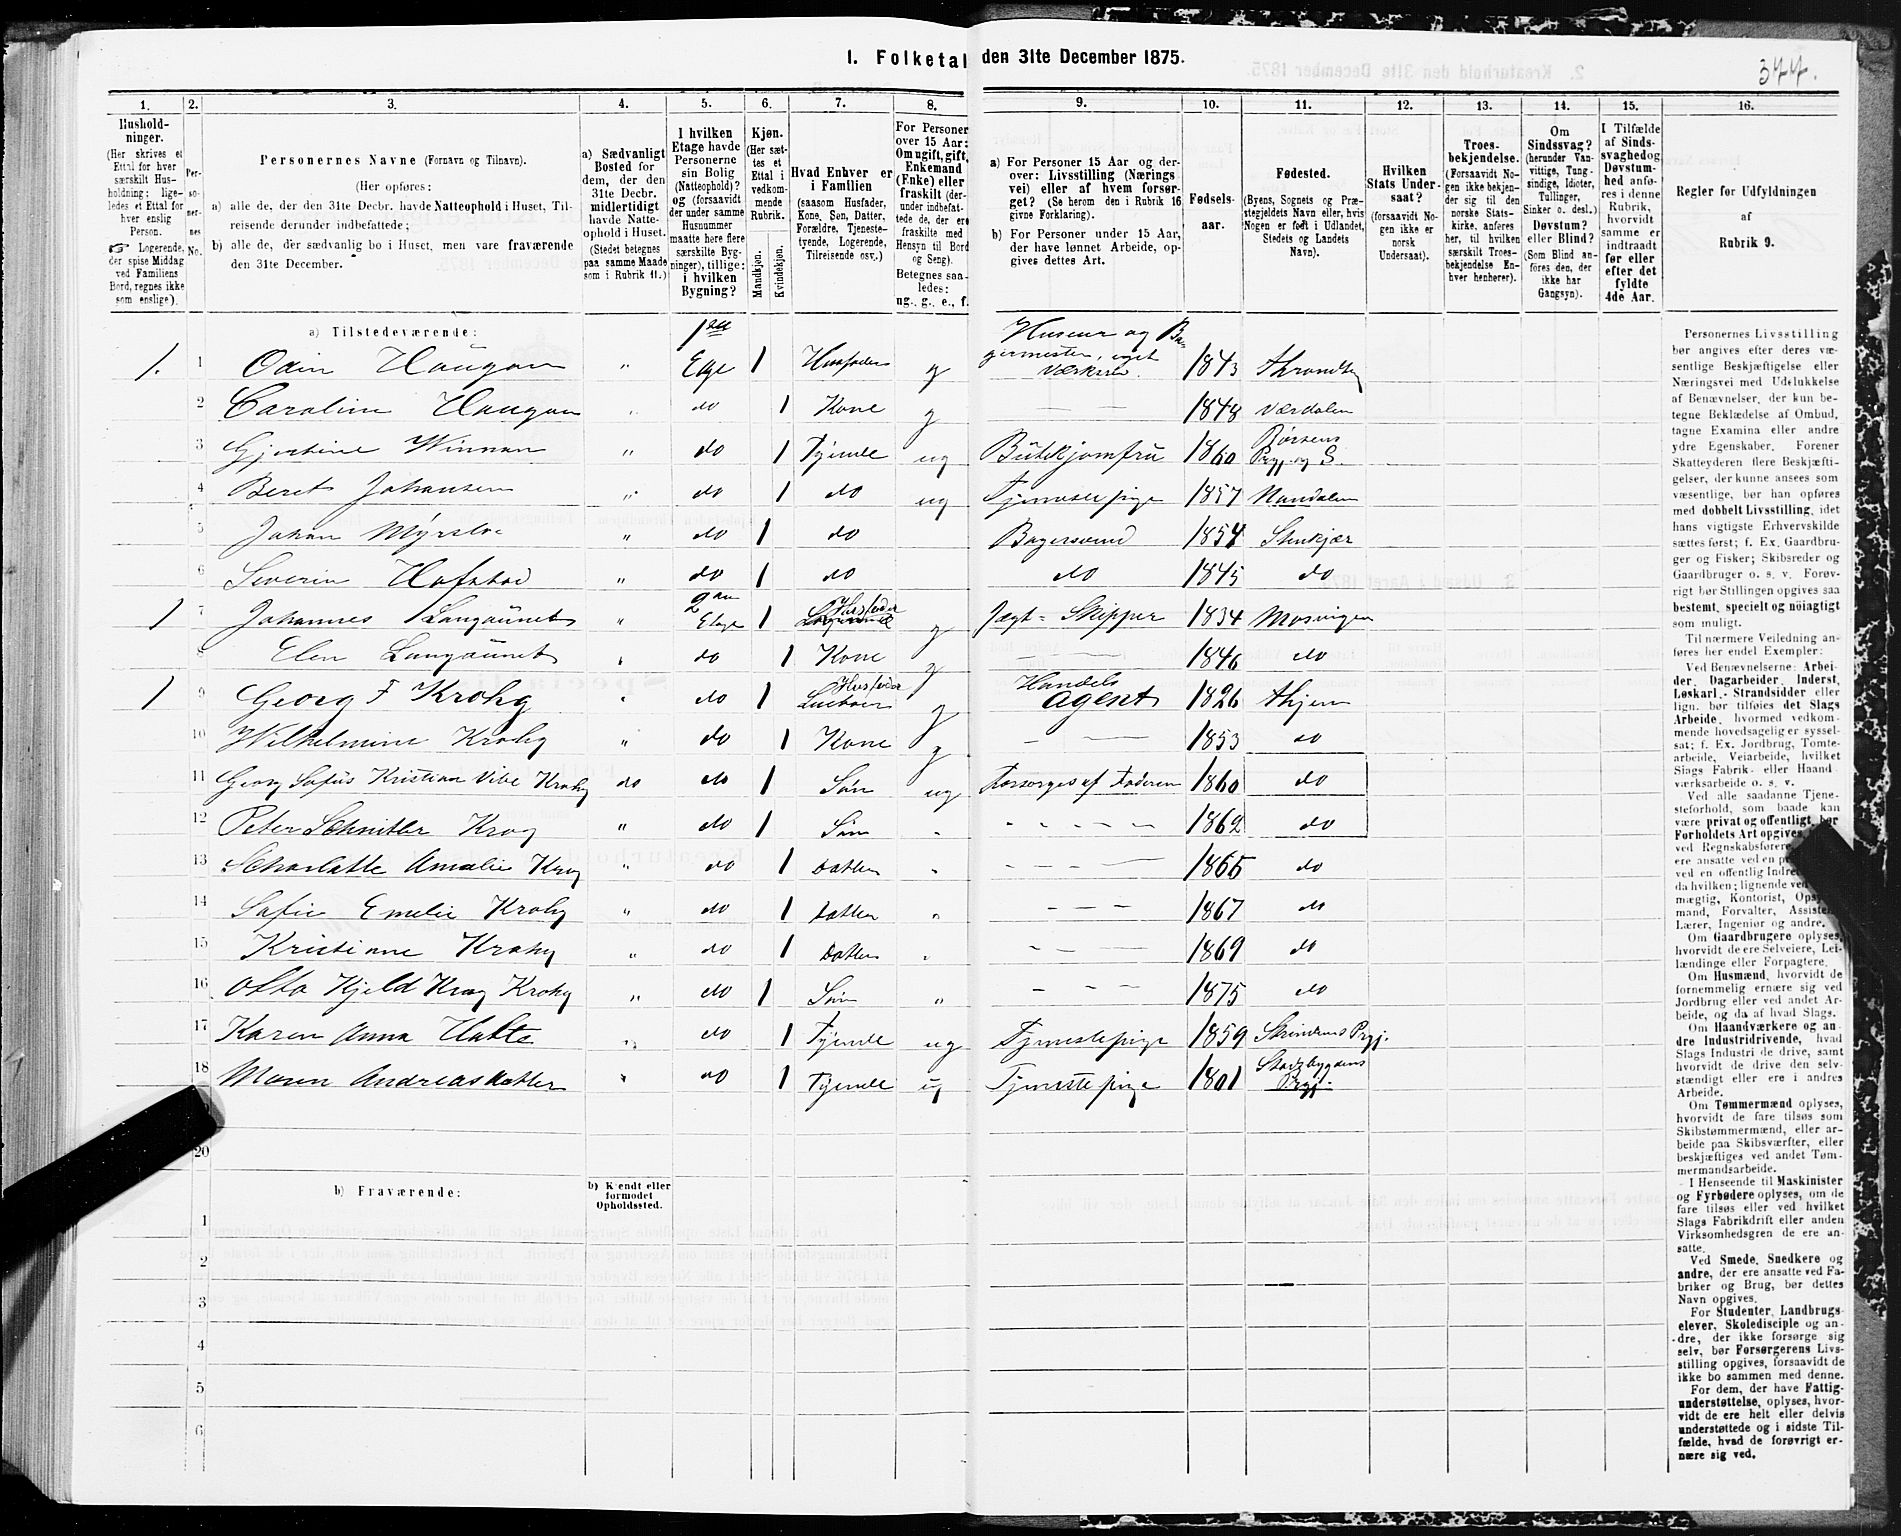 1. Folketal den 31te December 1875.
377.
1. 2. 3. 4. 5. 6. 7. 8. 9. 10. 11. 12. 13. 14. 15. 16.
Husholdninger.
(Her skrives et Ettal for hver særskilt Husholdning; ligeledes et Ettal for hver enslig Person.
☞ Logerende, der spise Middag ved Familiens Bord, regnes ikke som enslige).
Personernes No.
Personernes Navne (Fornavn og Tilnavn).
(Her opføres:
a) alle de, der den 31te Decbr. havde Natteophold i Huset, Tilreisende derunder indbefattede;
b) alle de, der sædvanlig bo i Huset, men vare fraværende den 31te December.
a) Sædvanligt Bosted for dem, der den 31te Decbr. midlertidigt havde Natteophold i Huset.
(Stedet betegnes paa samme Maade som i Rubrik 11.)
I hvilken Etage havde Personerne sin Bolig (Natteophold)? og (forsaavidt der under samme Husnummer maatte høre flere særskilte Bygninger), tillige: i hvilken Bygning?
Kjøn.
(Her sættes et Ettal i vedkommende Rubrik.
Mandskjøn.
Kvindekjøn.
Hvad Enhver er i Familien
(saasom Husfader, Kone, Søn, Datter, Forældre, Tjenestetyende, Logerende, Tilreisende osv.)
For Personer over 15 Aar: Om ugift, gift, Enkemand (Enke) eller fraskilt (derunder indbefattede de, der ere fraskilte med Hensyn til Bord og Seng).
Betegnes saaledes: ug., g., e., f.
a) For Personer 15 Aar og derover: Livsstilling (Næringsvei) eller af hvem forsørget? (Se herom den i Rubrik 16 givne Forklaring).
b) For Personer under 15 Aar, der have lønnet Arbeide, opgives dettes Art.
Fødselsaar.
Fødested.
(Byens, Sognets og Præstegjeldets Navn eller, hvis Nogen er født i Udlandet, Stedets og Landets Navn).
Hvilken Stats Undersaat?
(forsaavidt Nogen ikke er norsk Undersaat).
Troesbekjendelse.
(Forsaavidt Nogen ikke bekjender sig til den norske Statskirke, anføres her, til hvilken særskilt Troesbekjendelse Enhver henhører).
Om Sindssvag? (herunder Vanvittige, Tungsindige, Idioter, Tullinger, Sinker o. desl.) Døvstum? eller Blind?
(Som Blind anføres den, der ikke har Gangsyn).
I Tilfælde af Sindssvaghed og Døvstumhed anføres i denne Rubrik, hvorvidt samme er indtraadt før eller efter det fyldte 4de Aar.
Regler for Udfyldningen af Rubrik 9.
a) Tilstedeværende:
1. 1 Odin Haugan " 1ste Etge 1 Husfader g Huseier og Bagermester, eget Værksted. 1843 Throndhj
2 Caroline Haugan " do 1 Kone g — — 1848 Værdalen
3 Gjertine Winnan " do 1 Tyende ug Butikjomfru 1860 Børsens Prgj. og S.
4 Beret Johansen " do 1 do ug Tjenestepige 1857 Namdalen
5 Johan Myrslo " do 1 do Bagersvend 1854 Stenkjær
6 Severin Hofstad " do 1 do do 1845 do
1 7 Johannes Langaunet " 2den Etage 1 Husfader g Jægt=Skipper 1834 Mosvigen
8 Elen Langaunet " do 1 Kone g — — 1846 do
1 9 Georg F Krohg " do 1 Husfader g Handels Agent 1826 Thjem
10 Wilhelmine Krohg " do 1 Kone g — — 1853 do
11 Georg Sofus Kristian Vibe Krohg do do 1 Søn ug Forsørges af Faderen 1860 do
12 Peter Schnitler Krog " do 1 Søn " — — — 1862 do
13 Scharlatte Amalie Krog " do 1 Datter " — — — 1865 do
14 Sofie Emelie Krohg " do 1 Datter " — — — 1867 do
15 Kristiane Krohg " do 1 Datter " — — — 1869 do
16 Otto Kjeld Krag Krohg " do 1 Søn " — — — 1875 do
17 Karen Anna Halte " do 1 Tyende ug Tjenestepige 1859 Strindens Prgj.
18 Maren Andreasdatter " do 1 Tyende ug Tjenestepige 1801 Stadsbygdens Prgj.
20
b) Fraværende:
b) Kjendt eller formodet Opholdssted.
1
2
3
4
5
6
Personernes Livsstilling bør angives efter deres væsentlige Beskjæftigelse eller Næringsvei med Udelukkelse af Benævnelser, der kun betegne Beklædelse af Ombud, tagne Examina eller andre ydre Egenskaber. Forener Skatteyderen flere Beskjæftigelser, der kunne ansees som væsentlige, bør han opføres med dobbelt Livsstilling, idet hans vigtigste Erhvervskilde sættes først; f. Ex. Gaardbruger og Fisker; Skibsreder og Gaardbruger o. s. v. Forøvrigt bør Stillingen opgives saa bestemt, specielt og nöiagtigt som muligt.
Til nærmere Veiledning anføres her endel Exempler:
Ved Benævnelserne: Arbeider, Dagarbeider, Inderst, Løskarl, Strandsidder eller lign. bør tilføies det Slags Arbeide, hvormed vedkommende hovedsagelig er sysselsat; f. Ex. Jordbrug, Tomtearbeide, Veiarbeide, hvilket Slags Fabrik- eller Haandværksarbeide o. s. v.
Ved alle saadanne Tjenesteforhold, som baade kan være privat og offentligt, bør Forholdets Art opgives,
ved Regnskabsførere
ere ansatte ved en
ved en offentlig
da hvilken; lignende ved
mægtig, Kontorist,
mand, Forvalter,
Lærer, Ingeniør og andre.
Om Gaardbrugere oplyses, hvorvidt de ere Selveiere, Leilændinge eller Forpagtere.
Om Husmænd, hvorvidt de fornemmelig ernære sig ved Jordbrug eller ved andet Arbeide, og da af hvad Slags.
Om Haandværkere og andre Industridrivende, hvad Slags Industri de drive, samt hvorvidt de drive den selvstændigt eller ere i andres Arbeide.
Om Tømmermænd oplyses, hvorvidt de fare tilsøs som Skibstømmermænd, eller arbeide paa Skibsværfter, eller beskjæftiges ved andet Tømmermandsarbeide.
I Henseende til Maskinister og Fyrbødere oplyses, om de fare tilsøs eller ved hvilket Slags Fabrikdrift eller anden Virksomhedsgren de ere ansatte.
Ved Smede, Snedkere og andre, der ere ansatte ved Fabriker og Brug, bør dettes Navn opgives.
For Studenter, Landbrugselever, Skoledisciple og andre, der ikke forsørge sig selv, bør Forsørgerens Livsstilling opgives, forsaavidt de ikke bo sammen med denne.
For dem, der have Fattigunderstøttelse, oplyses, hvorvidt de ere helt eller delvis understøttede og i sidste Tilfælde, hvad de forøvrigt ernære sig ved.